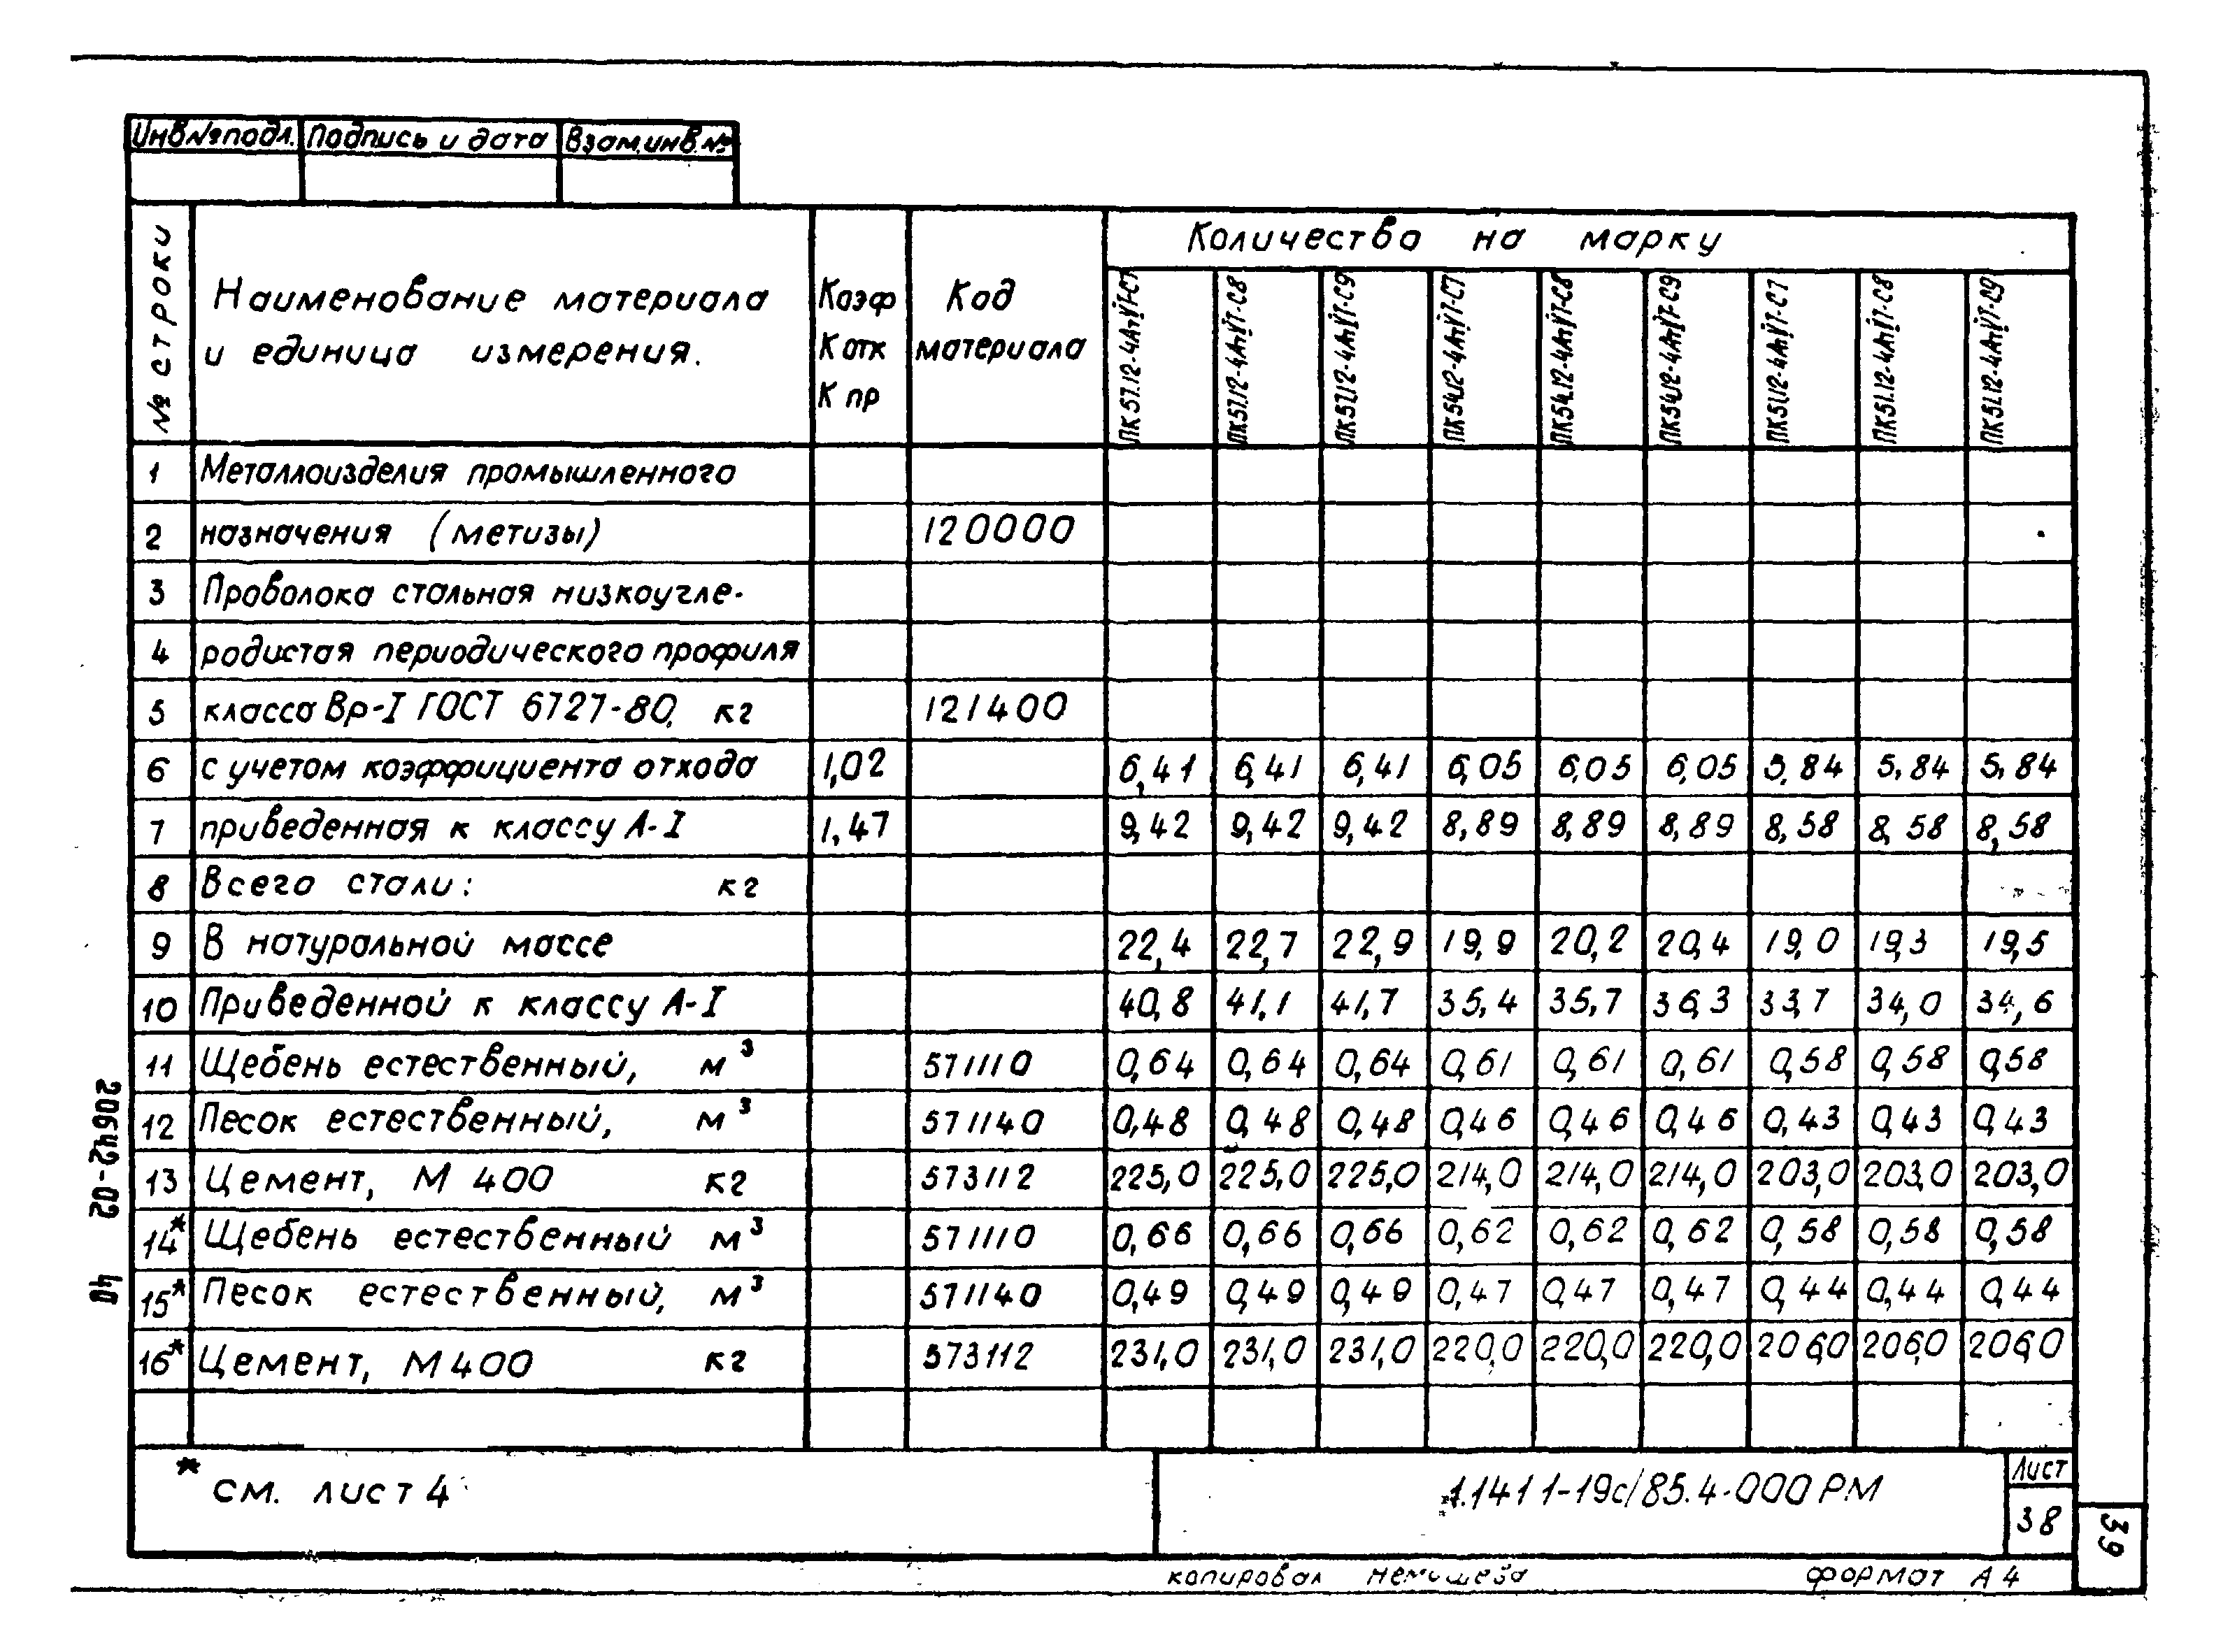 Инв№подл. Подпись и дата Взам.инв.№
№ строки Наименование материала и единица измерения. Коэф К отх К пр Код материала Количество на марку
ПК57.12-4АтVI-С7 ПК57.12-4АтVI-С8 ПК57.12-4АтVI-С9 ПК54.12-4АтVI-С7 ПК54.12-4АтVI-С8 ПК54.12-4АтVI-С9 ПК51.12-4АтVI-С7 ПК51.12-4АтVI-С8 ПК51.12-4АтVI-С9
1 Металлоизделия промышленного
2 назначения (метизы) 120000
3 Проволока стальная низкоугле-
4 родистая периодического профиля
5 класса Вр-I ГОСТ 6727-80, кг 121400
6 с учетом коэффициента отхода 1,02 6,41 6,41 6,41 6,05 6,05 6,05 5,84 5,84 5,84
7 приведенная к классу А-I 1,47 9,42 9,42 9,42 8,89 8,89 8,89 8,58 8,58 8,58
8 Всего стали: кг
9 В натуральной массе 22,4 22,7 22,9 19,9 20,2 20,4 19,0 19,3 19,5
10 Приведенной к классу А-I 40,8 41,1 41,7 35,4 35,7 36,3 33,7 34,0 34,6
11 Щебень естественный, м³ 571110 0,64 0,64 0,64 0,61 0,61 0,61 0,58 0,58 0,58
12 Песок естественный, м³ 571140 0,48 0,48 0,48 0,46 0,46 0,46 0,43 0,43 0,43
13 Цемент, М 400 кг 573112 225,0 225,0 225,0 214,0 214,0 214,0 203,0 203,0 203,0
14* Щебень естественный м³ 571110 0,66 0,66 0,66 0,62 0,62 0,62 0,58 0,58 0,58
15* Песок естественный, м³ 571140 0,49 0,49 0,49 0,47 0,47 0,47 0,44 0,44 0,44
16* Цемент, М400 кг 573112 231,0 231,0 231,0 220,0 220,0 220,0 206,0 206,0 206,0
* см. лист 4
1.141 1-19с/85.4-000 РМ
Лист
38
39
копировал Немишева формат А4
20642-02 40